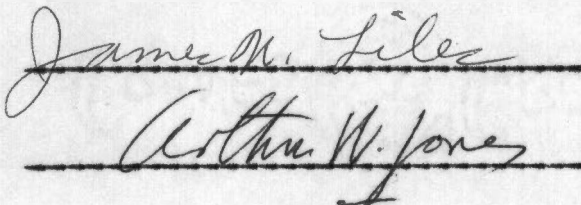 James M. Liles
Arthur W. Jones